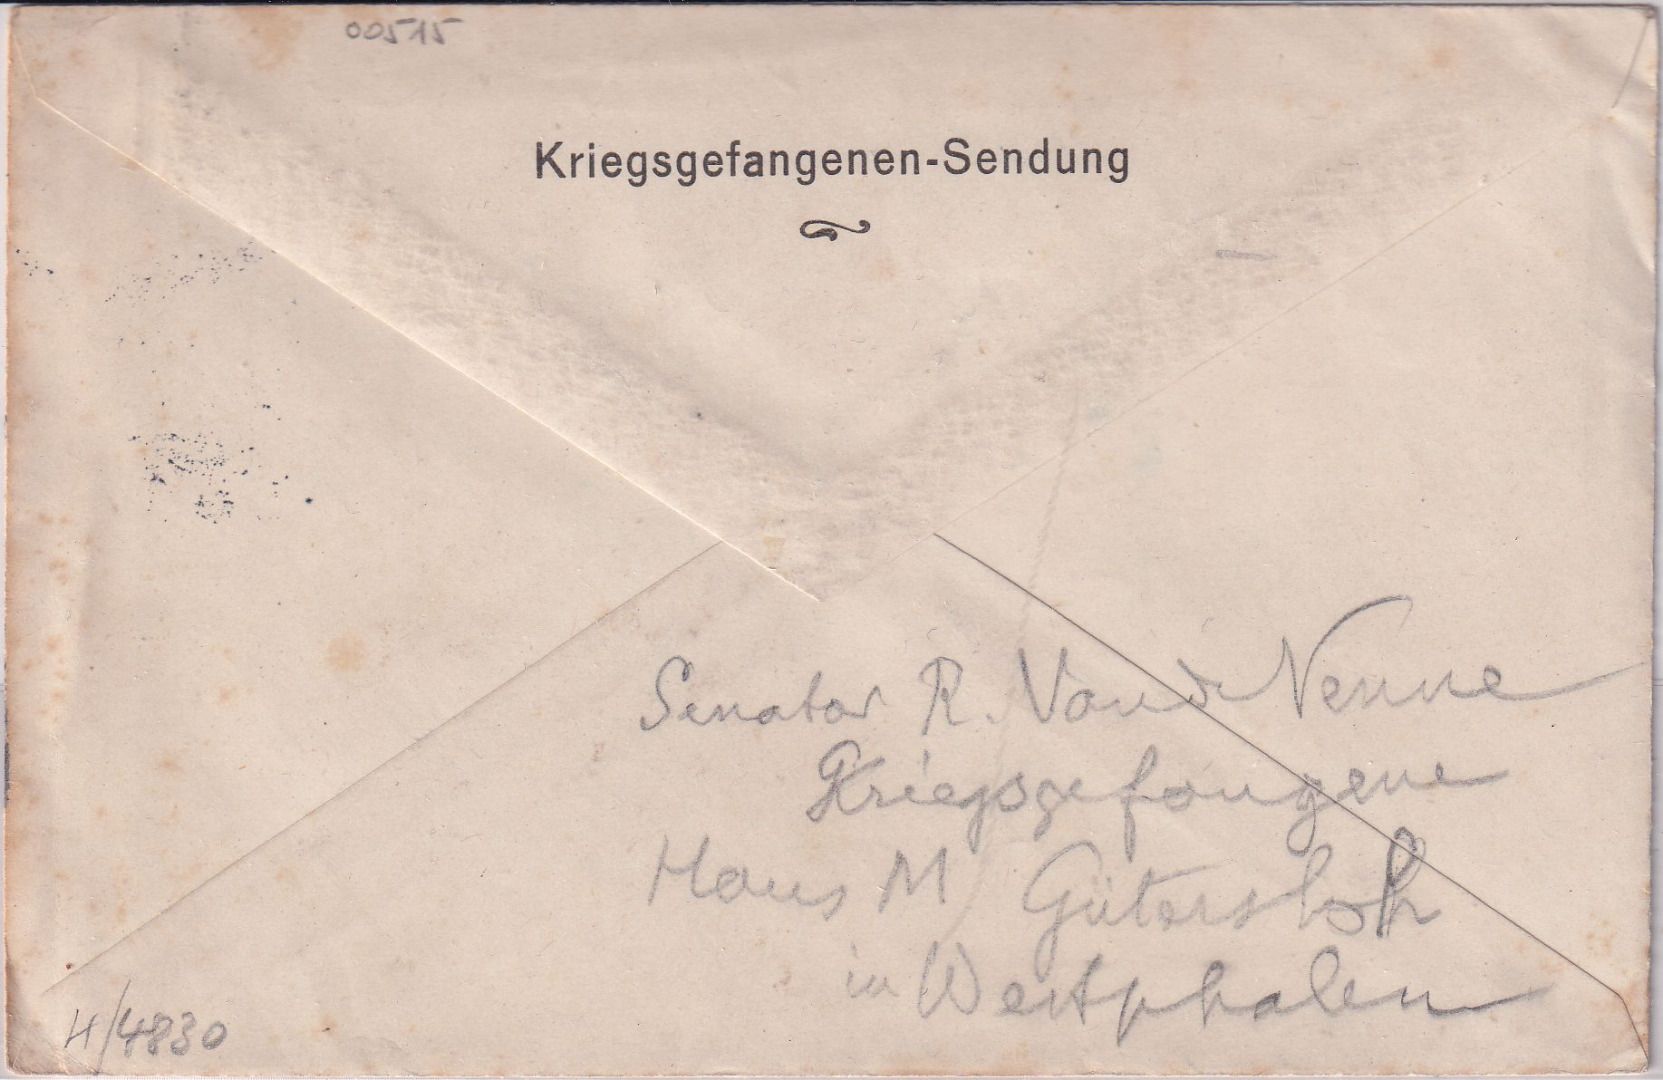 00515
Kriegsgefangenen-Sendung
Senator R. Vande Venne
Kriegsgefangene
Haus M Gütersloh
in Westphalen
H/4830